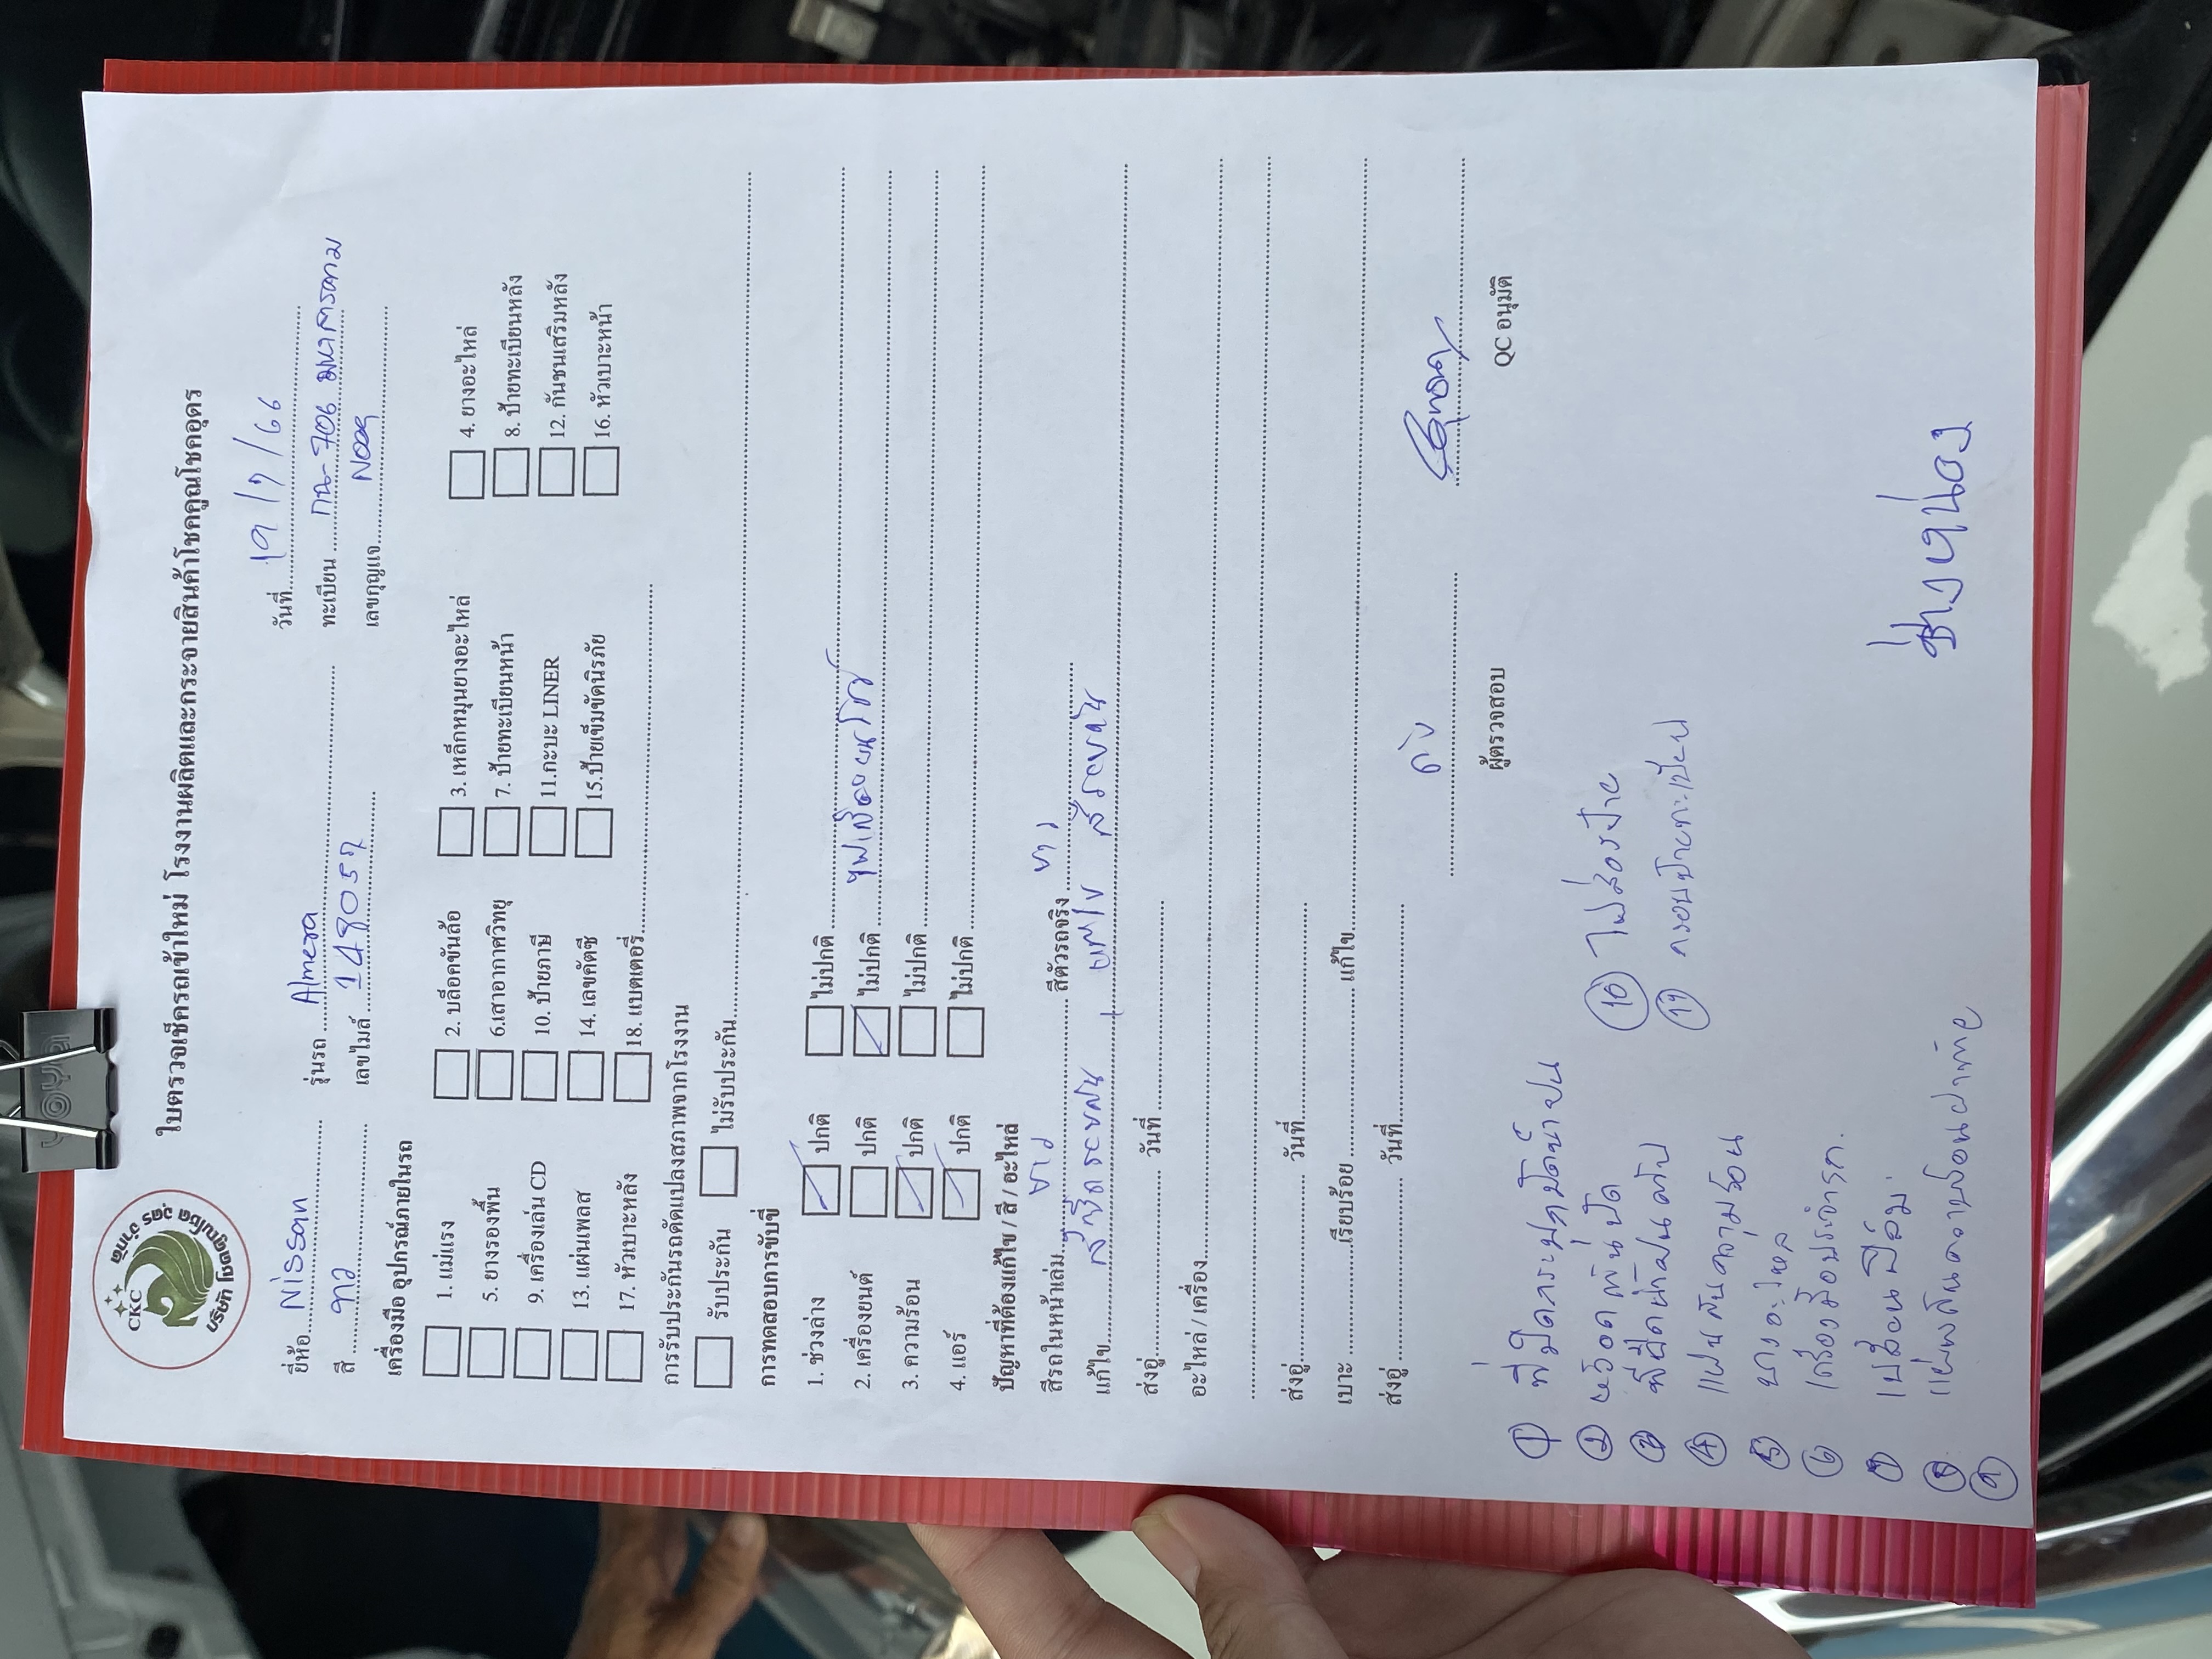 CKC
บริษัท โชคคูณโชค อุดร จำกัด
ใบตรวจเช็ครถเข้าใหม่ โรงงานผลิตและกระจายสินค้าโชคคูณโชคอุดร
วันที่ 19/7/66
ยี่ห้อ Nissan รุ่นรถ Almera ทะเบียน 706 มหาสารคาม
สี ขาว เลขไมล์ 148057 เลขกุญแจ
เครื่องมือ อุปกรณ์ภายในรถ
1. แม่แรง 2. บล็อคขันล้อ 3. เหล็กหมุนยางอะไหล่ 4. ยางอะไหล่
5. ยางรองพื้น 6.เสาอากาศวิทยุ 7. ป้ายทะเบียนหน้า 8. ป้ายทะเบียนหลัง
9. เครื่องเล่น CD 10. ป้ายภาษี 11.กะบะ LINER 12. กันชนเสริมหลัง
13. แผ่นเพลส 14. เลขคัตซี 15.ป้ายเข็มขัดนิรภัย 16. หัวเบาะหน้า
17. หัวเบาะหลัง 18. แบตเตอรี่
การรับประกันรถดัดแปลงสภาพจากโรงงาน
รับประกัน ไม่รับประกัน
การทดสอบการขับขี่
1. ช่วงล่าง ปกติ ไม่ปกติ
2. เครื่องยนต์ ปกติ ไม่ปกติ ไฟเครื่องยนต์โชว์
3. ความร้อน ปกติ ไม่ปกติ
4. แอร์ ปกติ ไม่ปกติ
ปัญหาที่ต้องแก้ไข / สี / อะไหล่
สีรถในหน้าเล่ม ขาว สีตัวรถจริง ขาว
แก้ไข
ส่งอู่ วันที่
อะไหล่ / เครื่อง
ส่งอู่ วันที่
เบาะ เรียบร้อย แก้ไข
ส่งอู่ วันที่
ผู้ตรวจสอบ QC อนุมัติ
① ที่ปิดกระปุกปัดน้ำฝน
②
③
④ แผ่นกันความร้อน
⑤ ยางอะไหล่
⑥ เครื่องมือประจำรถ
⑦
⑧
⑨
⑩ ไฟส่องป้าย
⑪ ครอบป้ายทะเบียน
ช่างหน่อง